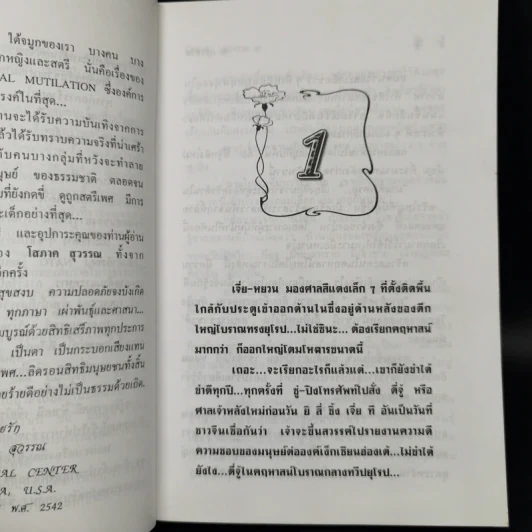 ใต้จมูกของเรา บางคน บาง
กหญิงและสตรี นั่นคือเรื่องของ
AL MUTILATION ซึ่งองค์การ
รงค์ในที่สุด...
านจะได้รับความบันเทิงจากการ
ล้วได้รับทราบความจริงที่น่าเศร้า
กับคนบางกลุ่มที่หวังจะทำลาย
นุษย์ ของธรรมชาติ ตลอดจน
มที่ยังกดขี่ ดูถูกสตรีเพศ มีการ
ะเด็กอย่างที่สุด...
และอุปการะคุณของท่านผู้อ่าน
อง โสภาค สุวรรณ ทั้งจาก
อีกครั้ง
สุขสงบ ความปลอดภัยจงบังเกิด
ทุกภาษา เผ่าพันธุ์และศาสนา...
มบูรณ์ด้วยสิทธิเสรีภาพทุกประการ
เป็นตา เป็นกระบอกเสียงแทน
เพศ...ลิดรอนสิทธิมนุษยชนทั้งสิ้น
ยร้ายดีอย่างไม่เป็นธรรมด้วยเถิด.
ยรัก
สุวรรณ
AL CENTER
A, U.S.A.
พ.ศ. 2542
1
เจี่ย-หยวน มองศาลสีแดงเล็ก ๆ ที่ตั้งติดพื้น
ใกล้กับประตูเข้าออกด้านในซึ่งอยู่ด้านหลังของตึก
ใหญ่โบราณทรงยุโรป...ไม่ใช่ซินะ... ต้องเรียกคฤหาสน์
มากกว่า ก็ออกใหญ่โตมโหฬารขนาดนี้
เถอะ...จะเรียกอะไรก็แล้วแต่...เขาก็ยังขำได้
ขำดีทุกปี...ทุกครั้งที่ ซู่-ปิงโทรศัพท์ไปสั่ง ตี่จู้ หรือ
ศาลเจ้าหลังใหม่ก่อนวัน ยิ สี่ ซิ่ง เจี่ย ที อันเป็นวันที่
ชาวจีนเชื่อกันว่า เจ้าจะขึ้นสวรรค์ไปรายงานความดี
ความชอบของมนุษย์ต่อองค์เง็กเซียนฮ่องเต้...ไม่ขำได้
ยังไง...ตี่จู้ในคฤหาสน์โบราณกลางทวีปยุโรป...